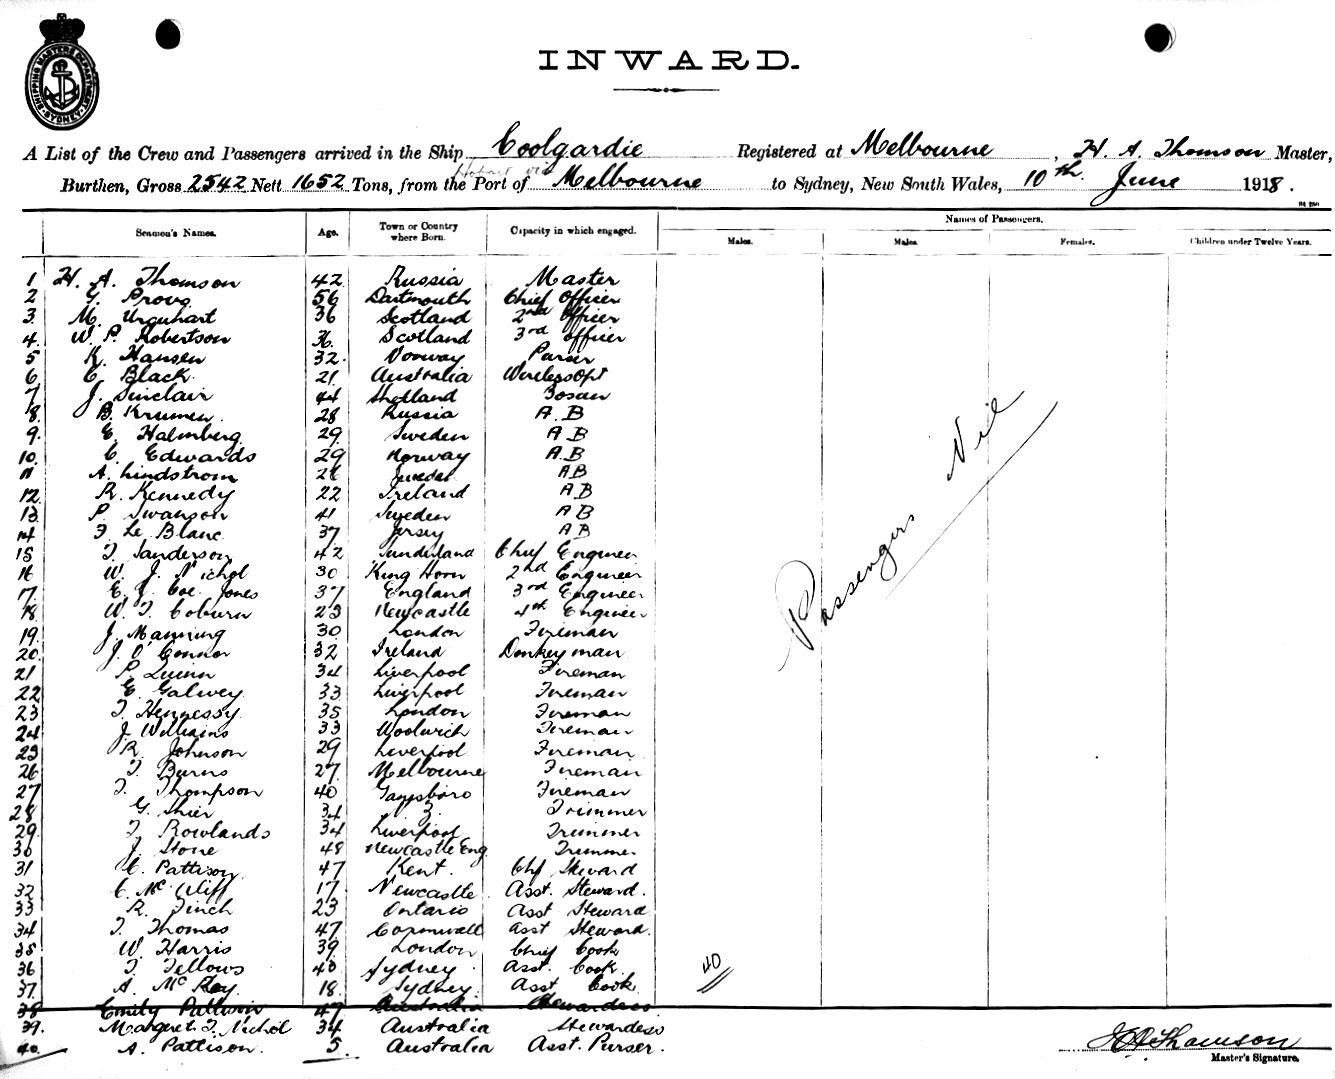 SHIPPING MASTERS DEPARTMENT SYDNEY
INWARD.
A List of the Crew and Passengers arrived in the Ship Coolgardie Registered at Melbourne, H. A. Thomson Master,
Hobart via
Burthen, Gross 2542 Nett 1652 Tons, from the Port of Melbourne to Sydney, New South Wales, 10th June 1918.
Names of Passengers.
Seamen's Names. Age. Town or Country where Born. Capacity in which engaged. Males. Males. Females. Children under Twelve Years.
1 H. A. Thomson 42 Russia Master
2 G. Provo 56 Dartmouth Chief Officer
3. M. Urquhart 36 Scotland 2nd Officer
4. W. P. Robertson 36. Scotland 3rd officer
5 K. Hansen 32. Norway Purser
6 C. Black 21 Australia Wireless Opt
7 J. Sinclair 44 Shetland Bosun
8. B. Krumen 28 Russia A.B
9. E. Halmberg 29 Sweden A B
10. C. Edwards 29 Norway A.B
11 A. Lindstrom 26 Sweden AB
12. R. Kennedy 22 Ireland AB
13 P. Swanson 41 Sweden AB
14 F. Le Blanc 37 Jersey AB
15 T. Sanderson 42 Sunderland Chief Engineer
16 W. J. Nichol 30 King Horn 2nd Engineer
17. E. J. Coe. Jones 37 England 3rd Engineer
18 W. T. Coburn 23 Newcastle 4th Engineer
19. J. Manning 30 London Fireman
20. J. O'Connor 32 Ireland Donkeyman
21 P. Quinn 34 Liverpool Fireman
22 E. Galwey 33 Liverpool Fireman
23 T. Hennessy 35 London Fireman
24 J. Williams 33 Woolwich Fireman
25 R. Johnson 29 Liverpool Fireman
26 T. Burns 27 Melbourne Fireman
27 T. Thompson 40 Fireman
28 G. Shier 34 Trimmer
29 T. Rowlands 34 Liverpool Trimmer
30 J. Stone 48 Newcastle Eng Trimmer
31 C. Pattison 47 Kent. Chf Steward
32 C. Mc Cliff 17 Newcastle Asst. Steward.
33 R. Finch 23 Ontario Asst Steward
34 T. Thomas 47 Cornwall Asst Steward.
35 W. Harris 39 London Chief Cook
36 T. Fellows 40 Sydney. Asst. Cook
37. A. McKay. 18. Sydney. Asst Cook
38 Emily Pattison 47 Australia Stewardess
39. Margaret T. Nichol 34 Australia Stewardess
40. A. Pattison. 5. Australia Asst. Purser.
Passengers Nil
40
H A Thomson
Master's Signature.